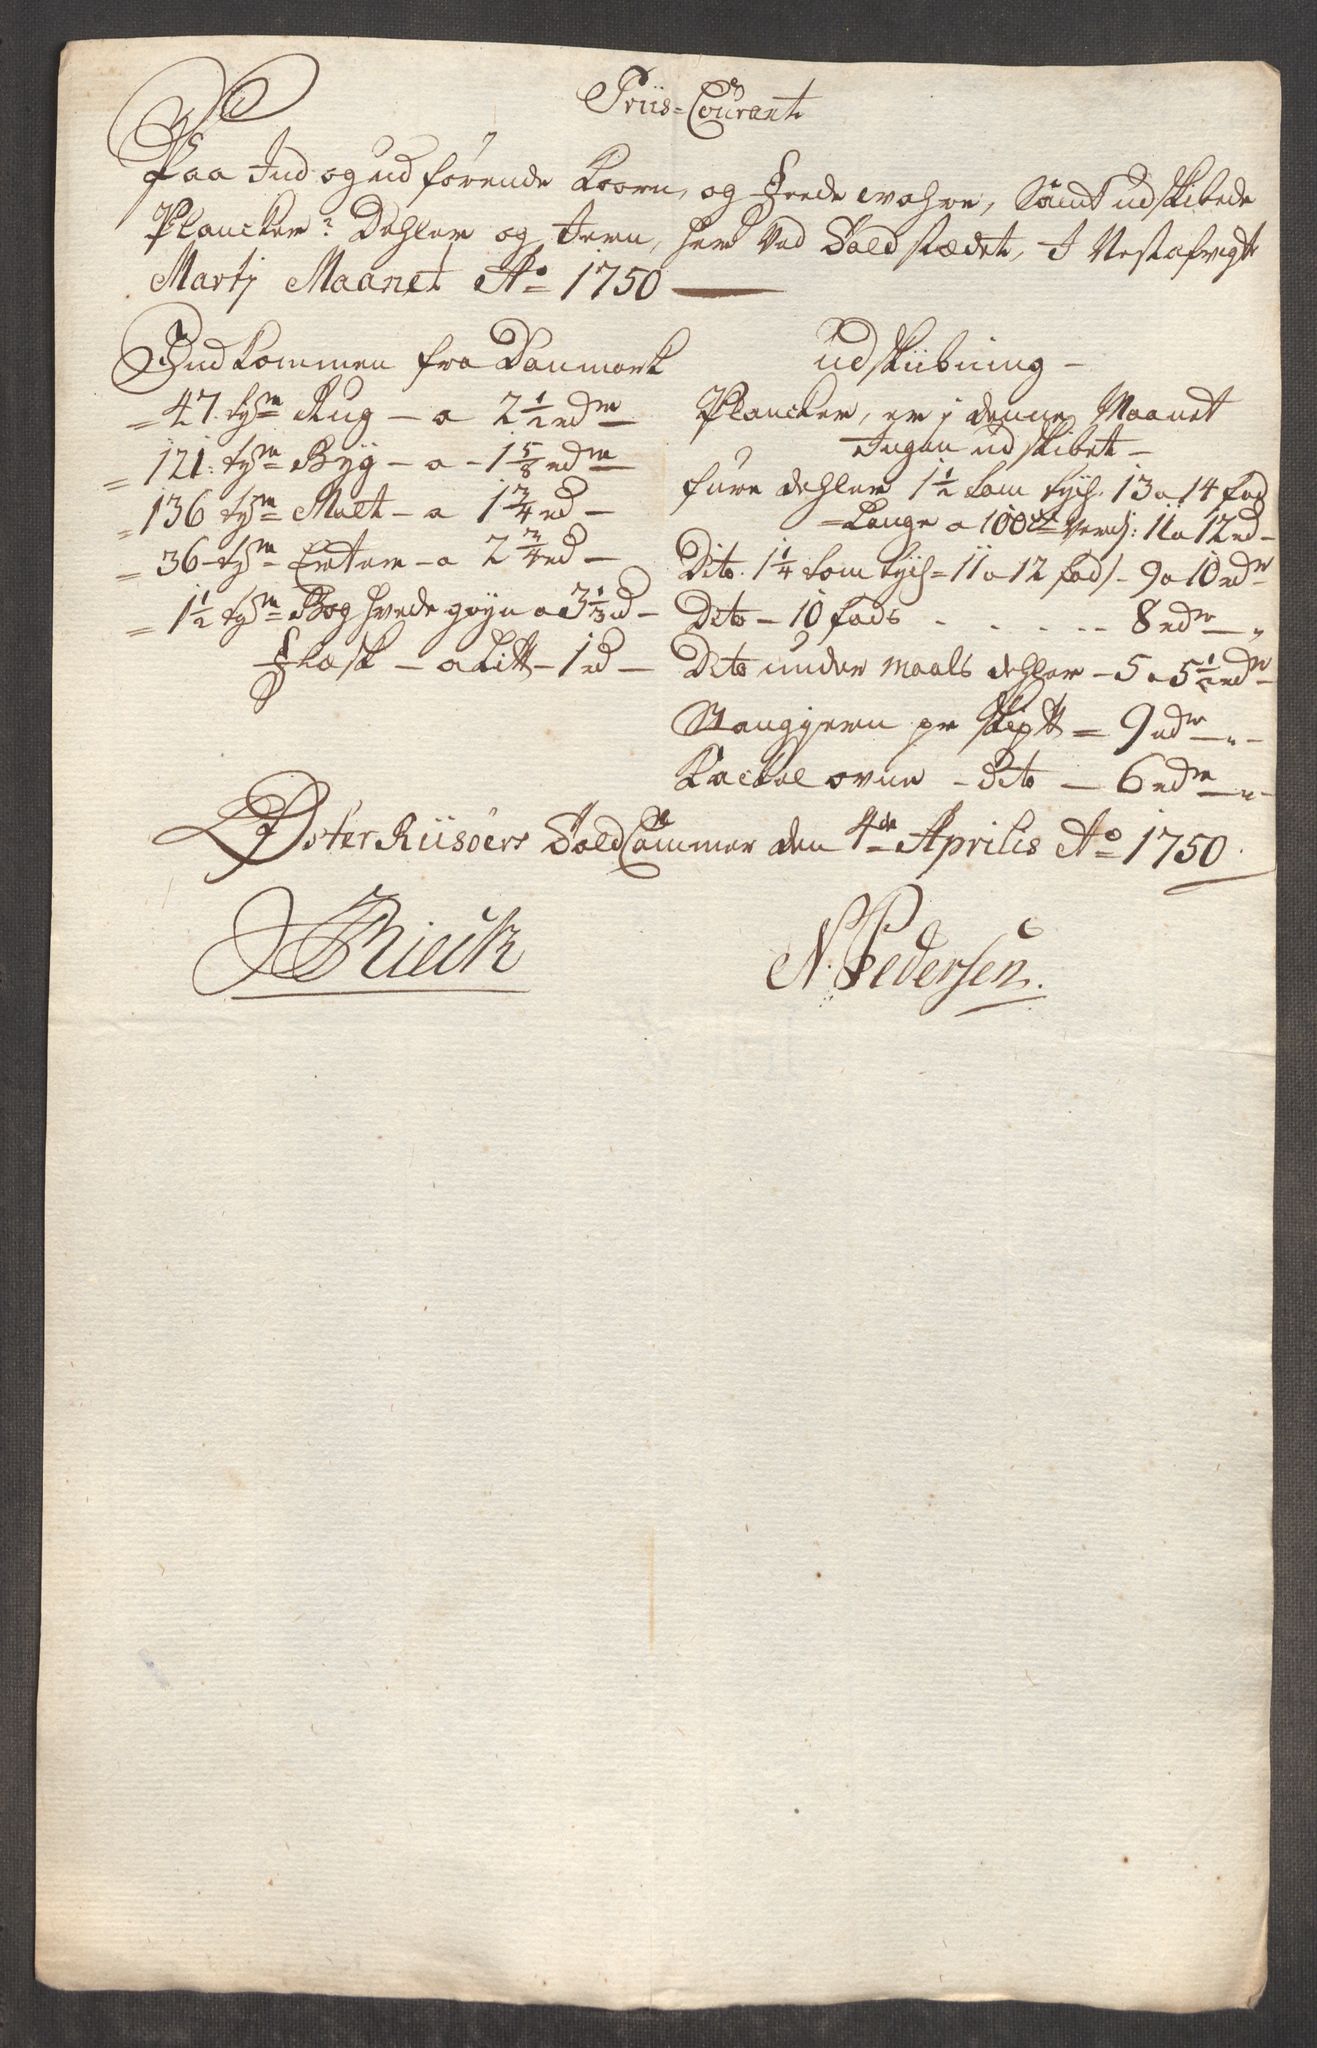 Priis-Courant
Paa Ind og udførende Koorn, og Fede wahre, Samt udskibede
Plancker, Dehler og Jern, her Ved Toldstædet, I Nestafvigte
Martj Maanet Ao 1750
Indkommen fra Danmark
= 47 tør Rug - a 2 1/2 rdr
= 121: tør Byg - a - 1 5/8 rdr
= 136 tør Malt - a 1 3/4 rd -
= 36 - tør Erter - a 2 3/4 rd -
= 1 1/2 tør Boghvede gryn a 3 1/3 rd -
Flæsk - a Litt - 1 rd -
udskibning -
Plancker, er j denne Maanet
Ingen udskibet -
fure dehler 1 1/2 tom tych. 13 a 14 fod
Lange a 100de 11 a 12 rd -
Dito. 1 1/4 tom tych = 11 a 12 fods - 9 a 10 rdr
Dito - 10 fods - - - - - 8 rdr
Dito under maals dehler - 5 a 5 1/2 rdr
Stangjern pr Skipt = 9 rdr
Kackel ovne - dito - 6 rdr
Øster Riisøers Told Cammer den 4de Aprilis Ao 1750.
N. Pedersen.